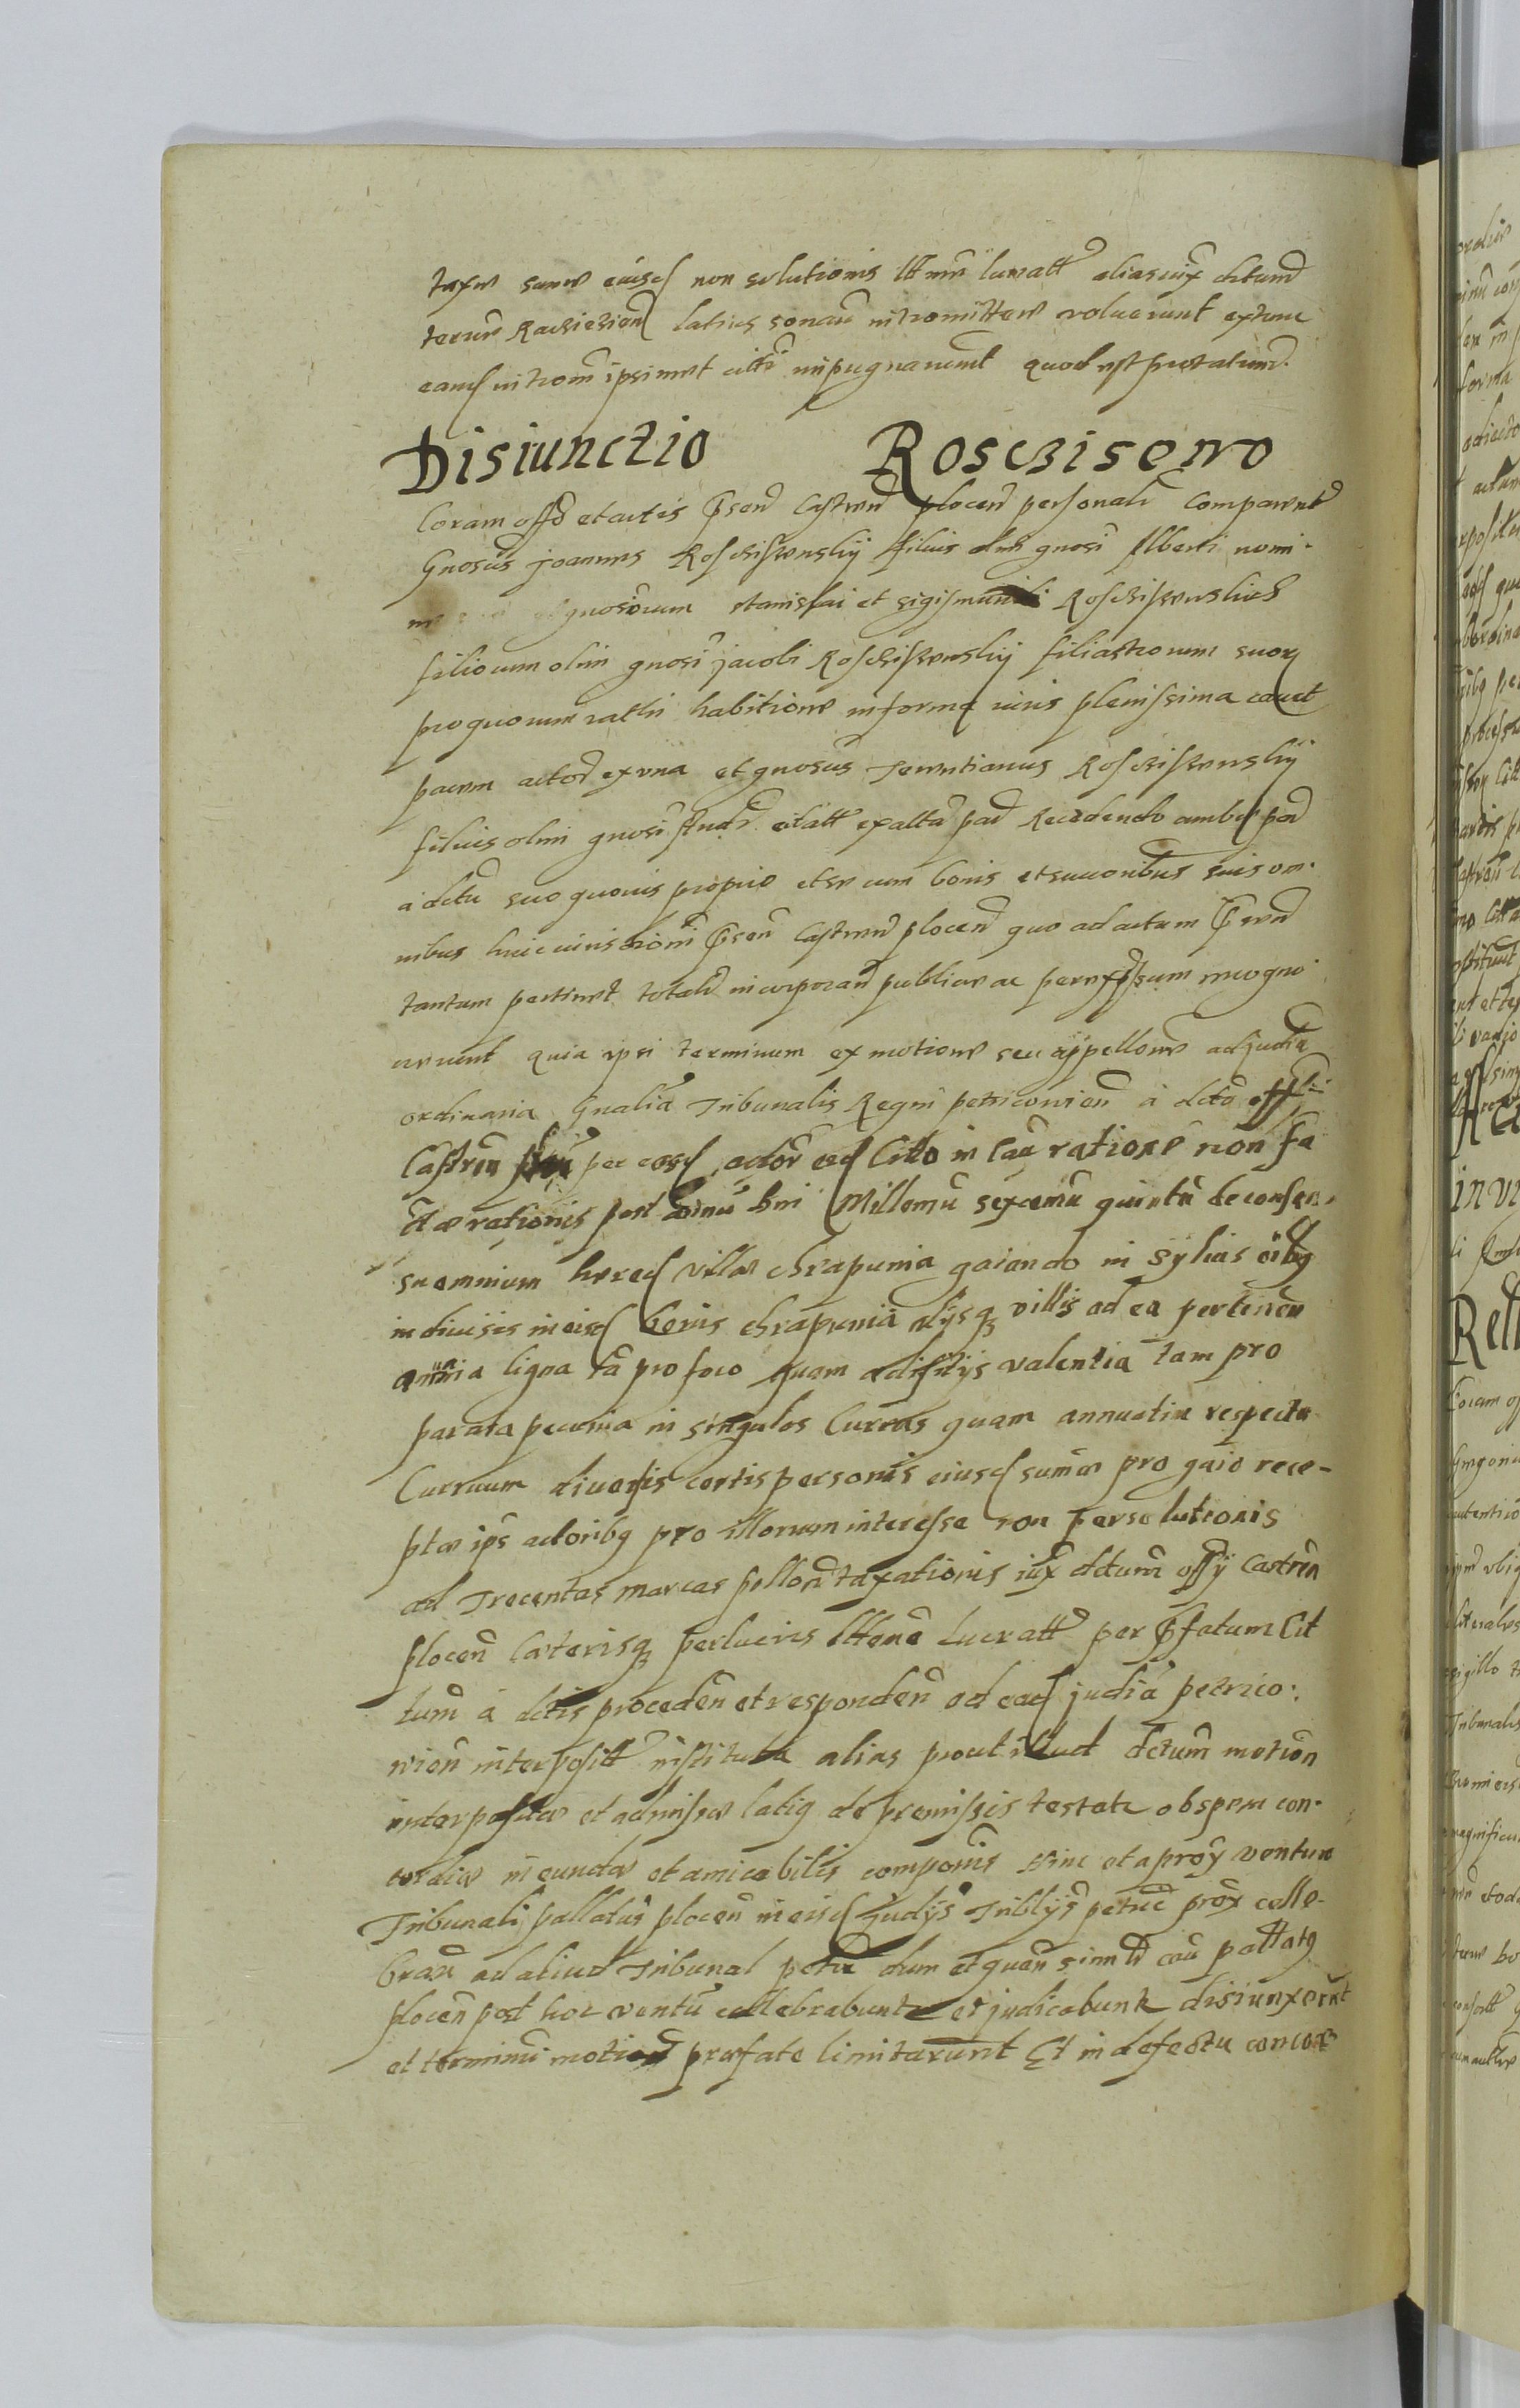 taxae sumae eiusd non solutionis littmn lucratt alias iux dictum
terum Racziezien latius sonan intromittere voluerunt extunc
eand introm ipsimet citti impugnarunt quod est protatum
Disiunctio Rosczisewo
Coram offo et actis pscn Castren plocen personalr comparente
Gnosus joannes Rosciszewskij filius olim gnosi Alberti nomi-
ne gnosorum stanislai et sigismundi Rosciszewskich
filiorum olim gnosi jacobi Rosciszewskij filiastrorum suor
pro quorum rathi habitione in forma iuris plenissima cauet
parem actor ex vna et gnosus Terentianus Rosciszewskij
filius olim gnosi citatt ex altta par Recedendo ambe par
a dctu suo quouis proprio et se cum bonis et succoribus suis om-
nibus huic iurisdioni psen Castren plocen quo ad actum psen
tantum pertinet totalr incorporan publice ac per expssum recogno
uerunt quia ipsi terminum ex motione seu appellone ad judia
ordinaria Gnalia Tribunalis Regni petricouien a dcto offi
Castren per eosd actor eid Citto in cau ratione non fa
ctae rationis post annu dni Millemu sexcemu quintu de consen-
su omnium hered villae chrapunia gaiando in syluis oibq
indiuisis in eisd bonis chrapunia alysq villis ad ea pertinen
omnia ligna ta pro foco quam aedifitijs valentia tam pro
parata pecunia in singulos Currus quam annuatim respectu
Curruum diuersis certis personis eiusd sumae pro gaio rece-
ptae ips actoribq pro illorum interesse non persolutionis
ad Trecentas marcas pollon taxationis iux dctum offy Castren
plocen Caeterisq perlucris lttene lucratt per pfatum Cit
tum a dctis proceden et responden ad ead judia petrico-
uien interpositt instituta alias prout illud dctum motion
interpositae et admissae latiq de premissis testatr ob spem con-
cordiae ineundae et amicabilis componis hinc et a proxy venturo
Tribunali pallatus plocen in eisd Judys Triblijs petric prox celle-
bran ad aliud Tribunal petri dum et quan simil cau pallatq
plocen post hoc ventu cellebrabunt et judicabunt disiunxerut
et terminu motion praefate limitarunt Et in defectu concor